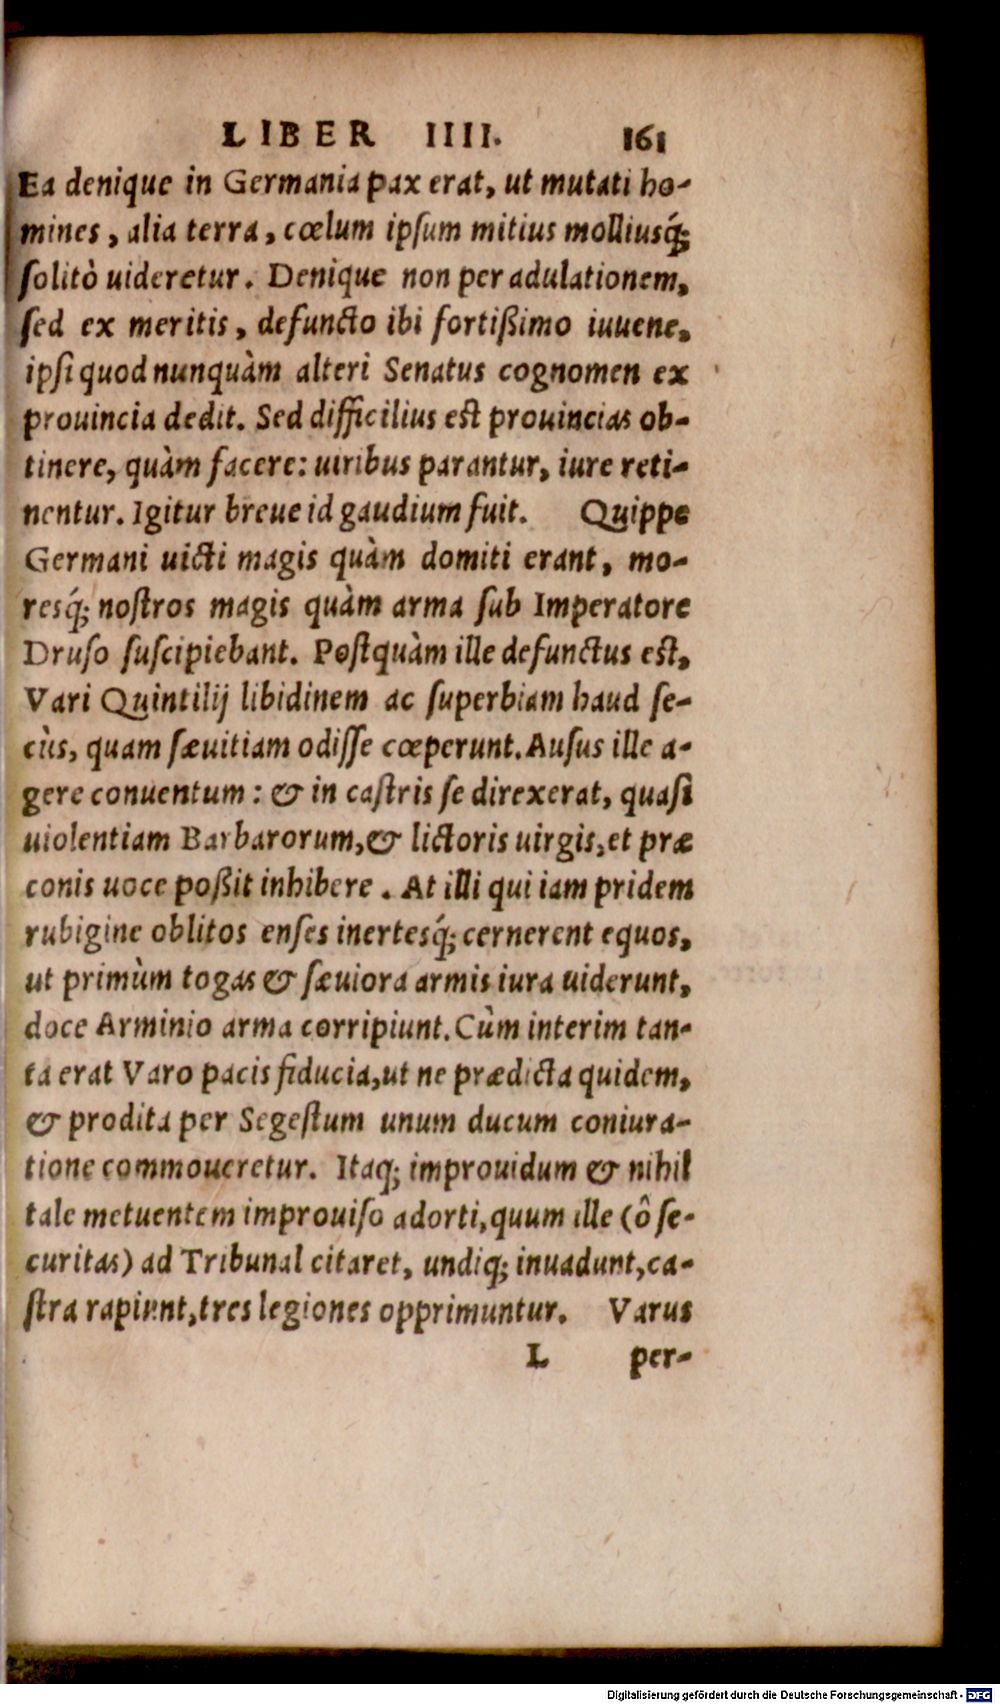 LIBER IIII. 161
Ea denique in Germania pax erat, ut mutati ho-
mines, alia terra, cœlum ipsum mitius molliusq́;
solitò uideretur. Denique non per adulationem,
sed ex meritis, defuncto ibi fortißimo iuuene,
ipsi quod nunquàm alteri Senatus cognomen ex
prouincia dedit. Sed difficilius est prouincias ob-
tinere, quàm facere: uiribus parantur, iure reti-
nentur. Igitur breue id gaudium fuit. Quippe
Germani uicti magis quàm domiti erant, mo-
resq́; nostros magis quàm arma sub Imperatore
Druso suscipiebant. Postquàm ille defunctus est,
Vari Quintilij libidinem ac superbiam haud se-
cùs, quam sæuitiam odisse cœperunt. Ausus ille a-
gere conuentum: & in castris se direxerat, quasi
uiolentiam Barbarorum, & lictoris uirgis, et præ
conis uoce poßit inhibere. At illi qui iam pridem
rubigine oblitos enses inertesq́; cernerent equos,
ut primùm togas & sæuiora armis iura uiderunt,
doce Arminio arma corripiunt. Cùm interim tan-
ta erat Varo pacis fiducia, ut ne prædicta quidem,
& prodita per Segestum unum ducum coniura-
tione commoueretur. Itaq; improuidum & nihil
tale metuentem improuiso adorti, quum ille (ô se-
curitas) ad Tribunal citaret, undiq; inuadunt, ca-
stra rapiunt, tres legiones opprimuntur. Varus
L per-
Digitalisierung gefördert durch die Deutsche Forschungsgemeinschaft - DFG